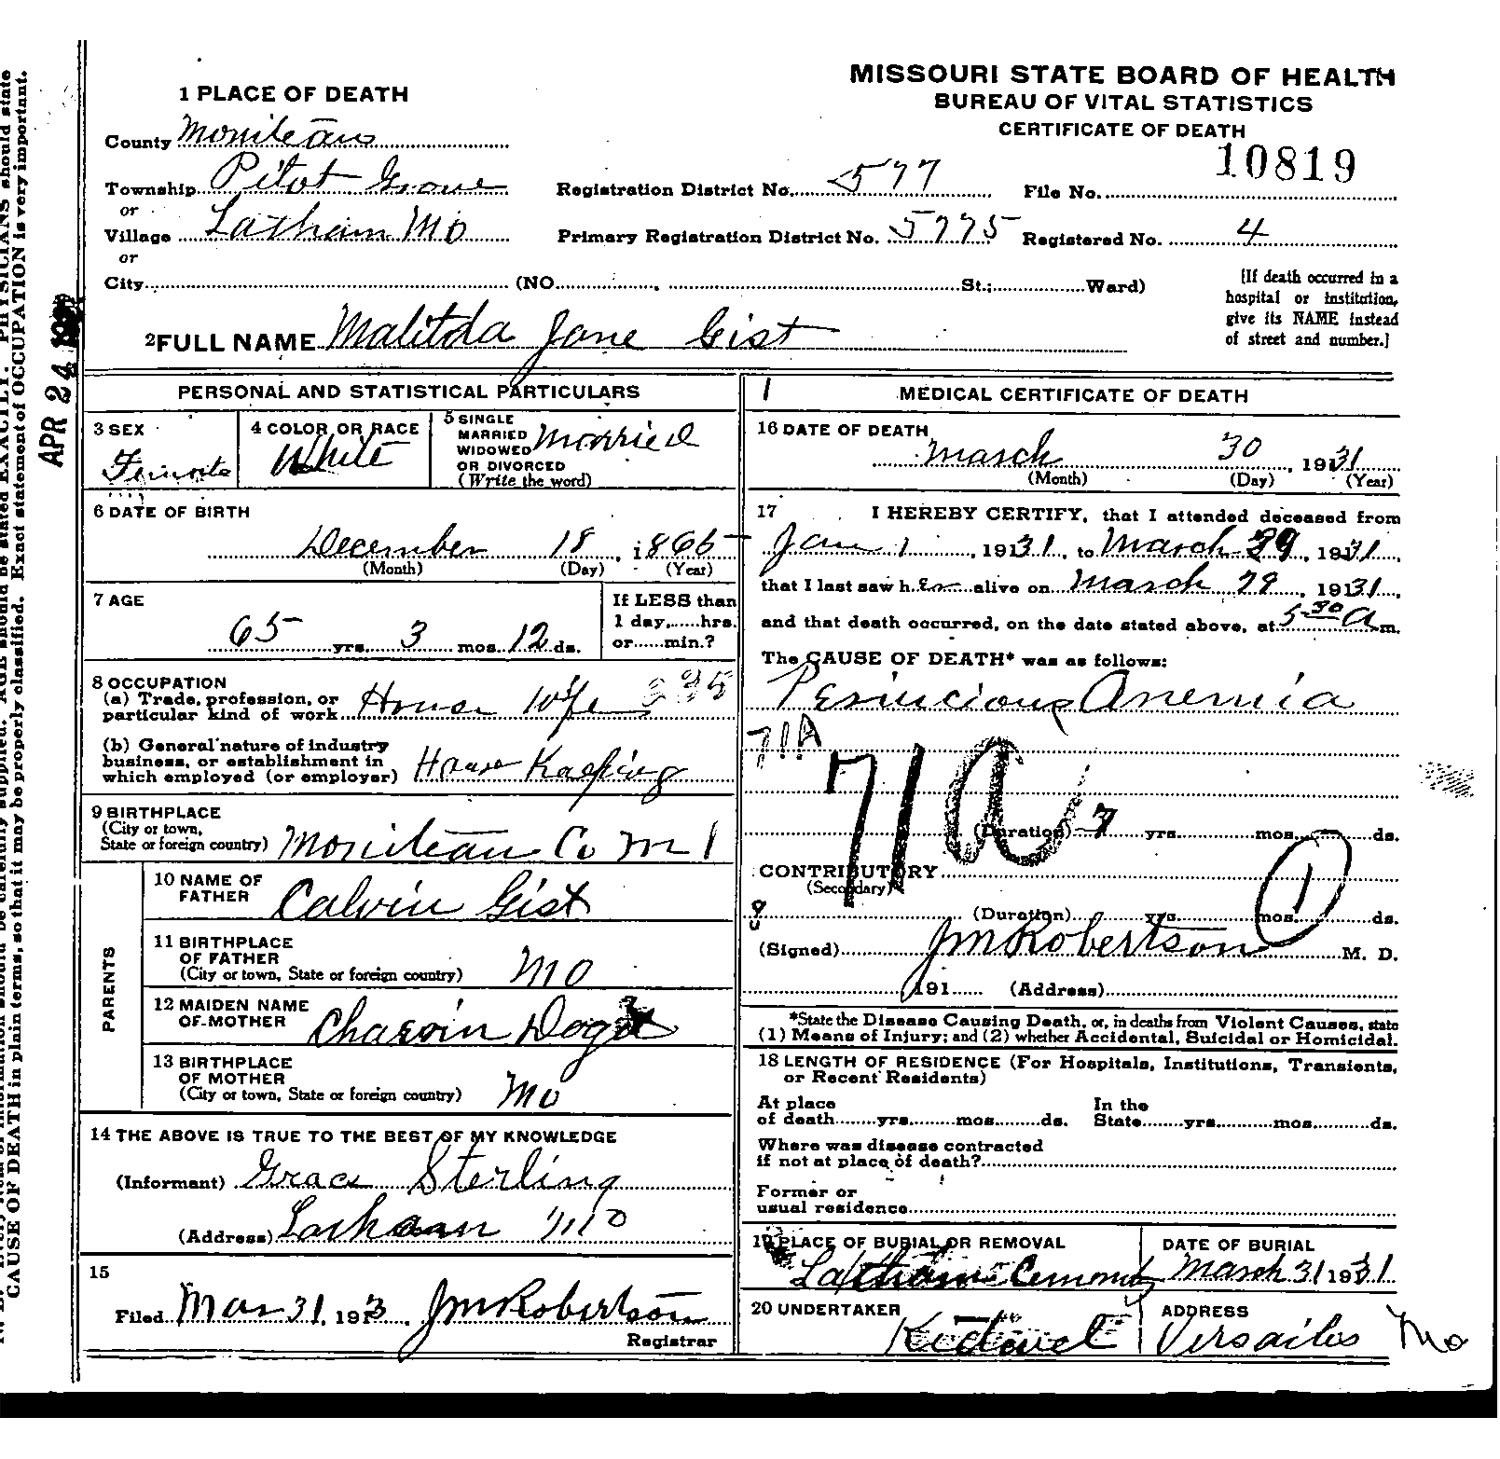 MISSOURI STATE BOARD OF HEALTH
BUREAU OF VITAL STATISTICS
CERTIFICATE OF DEATH
1 PLACE OF DEATH
County Moniteau
Township Pilot Grove
Registration District No. 577
File No. 10819
or
Village Latham Mo
Primary Registration District No. 5775
Registered No. 4
or
City (NO. , St.; Ward)
[If death occurred in a
hospital or institution,
give its NAME instead
of street and number.]
2 FULL NAME Malitda Jane Gist
PERSONAL AND STATISTICAL PARTICULARS
3 SEX
Female
4 COLOR OR RACE
White
5 SINGLE
MARRIED
WIDOWED
OR DIVORCED
(Write the word)
Married
6 DATE OF BIRTH
December 18, 1866
(Month) (Day) (Year)
7 AGE
65 yrs. 3 mos. 12 ds.
If LESS than
1 day, hrs.
or min.?
8 OCCUPATION
(a) Trade, profession, or
particular kind of work House Wife
(b) General nature of industry
business, or establishment in
which employed (or employer) House Kaeping
9 BIRTHPLACE
(City or town,
State or foreign country) Moniteau Co
PARENTS
10 NAME OF
FATHER
Calvin Gist
11 BIRTHPLACE
OF FATHER
(City or town, State or foreign country) Mo
12 MAIDEN NAME
OF MOTHER
13 BIRTHPLACE
OF MOTHER
(City or town, State or foreign country) Mo
14 THE ABOVE IS TRUE TO THE BEST OF MY KNOWLEDGE
(Informant) Grace Sterling
(Address) Latham Mo
15
Filed Mar 31, 193 , JM Robertson
Registrar
MEDICAL CERTIFICATE OF DEATH
16 DATE OF DEATH
March 30, 1931
(Month) (Day) (Year)
17 I HEREBY CERTIFY, that I attended deceased from
Jan 1, 1931, to March 29, 1931,
that I last saw her alive on March 29, 1931,
and that death occurred, on the date stated above, at 5-30 A m.
The CAUSE OF DEATH* was as follows:
Pernicious Anemia
71A
71a
(Duration) yrs. mos. ds.
CONTRIBUTORY
(Secondary)
1
(Duration) yrs. mos. ds.
(Signed) JM Robertson M. D.
191 (Address)
*State the Disease Causing Death, or, in deaths from Violent Causes, state
(1) Means of Injury; and (2) whether Accidental, Suicidal or Homicidal.
18 LENGTH OF RESIDENCE (For Hospitals, Institutions, Transients,
or Recent Residents)
At place
of death yrs. mos. ds.
In the
State yrs. mos. ds.
Where was disease contracted
if not at place of death?
Former or
usual residence
19 PLACE OF BURIAL OR REMOVAL
Latham
DATE OF BURIAL
March 31 1931
20 UNDERTAKER
ADDRESS
Versailes Mo
APR 24
CAUSE OF DEATH in plain terms, so that it may be properly classified. Exact statement of OCCUPATION is very important.